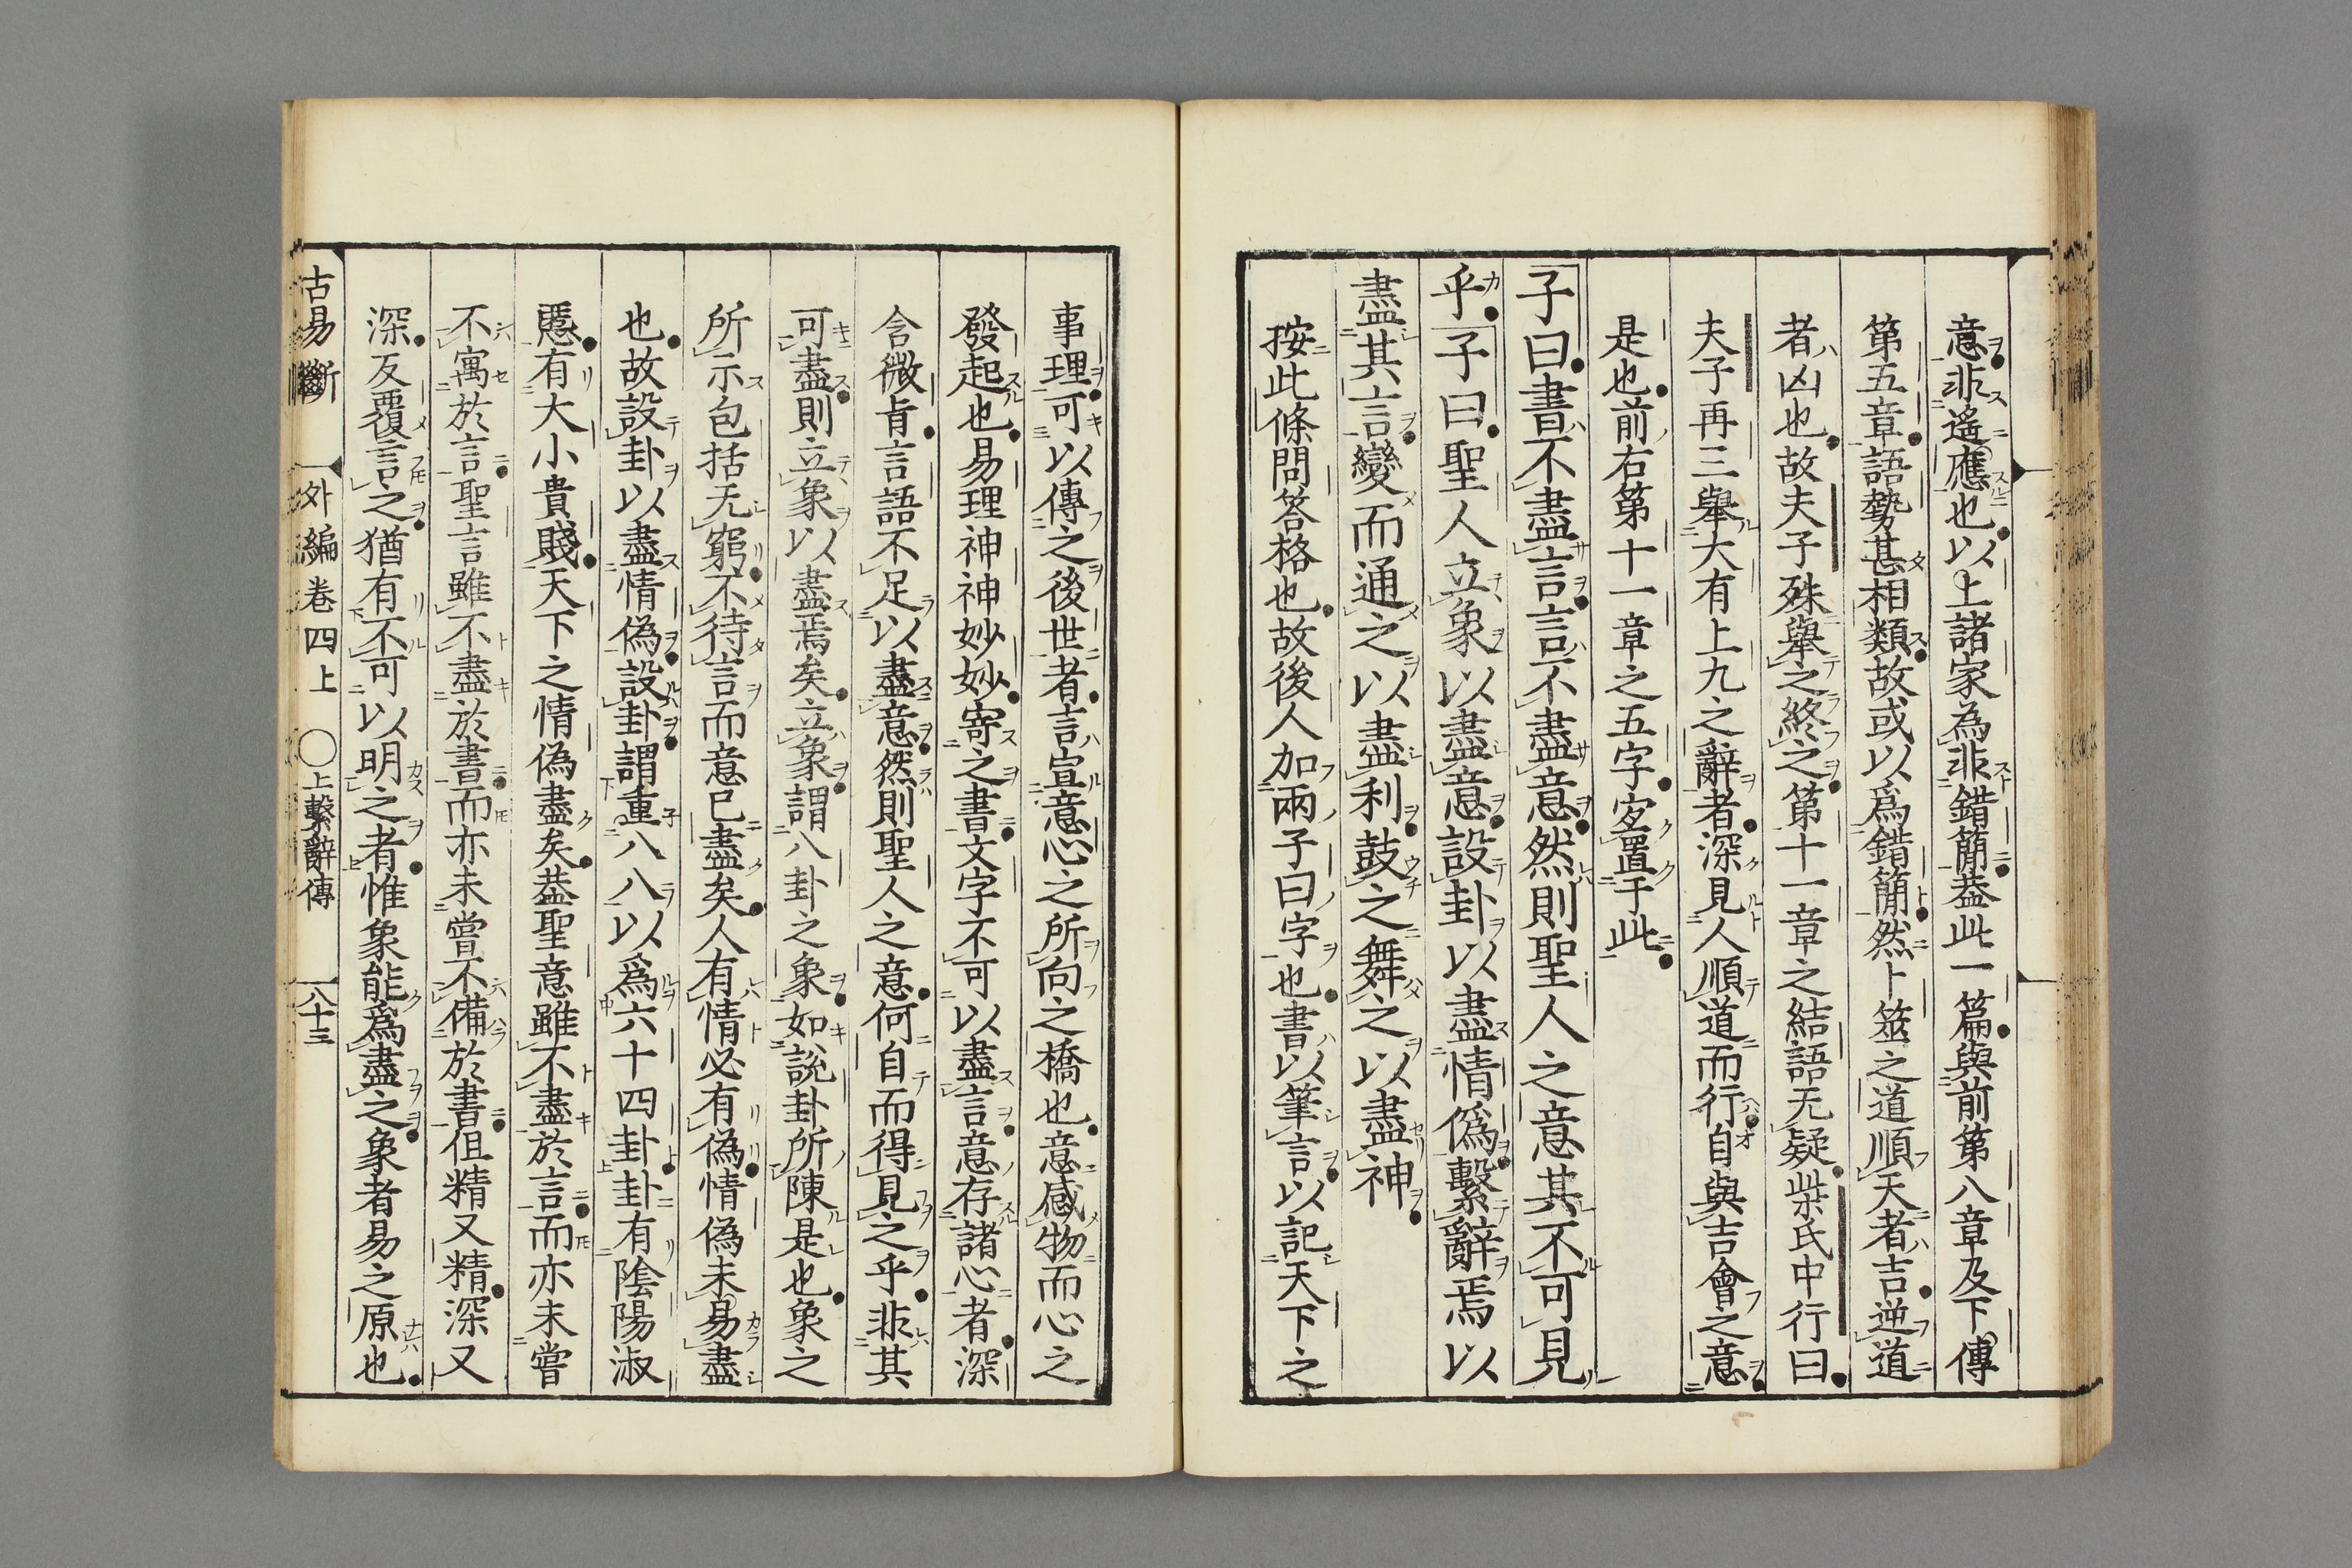 意非遙應也以上諸家為非錯簡葢此一篇與前第八章及下傳
第五章語勢甚相類故或以爲錯簡然卜筮之道順天者吉逆道
者凶也故夫子殊舉之終之第十一章之結語无疑柴氏中行曰
夫子再三舉大有上九之辭者深見人順道而行自與吉會之意
是也前右第十一章之五字宜置于此
子曰書不盡言言不盡意然則聖人之意其不可見
乎子曰聖人立象以盡意設卦以盡情僞繫辭焉以
盡其言變而通之以盡利鼓之舞之以盡神
按此條問答格也故後人加兩子曰字也書以筆言以記天下之
事理可以傳之後世者言宣意心之所向之橋也意感物而心之
發起也易理神神妙妙寄之書文字不可以盡言意存諸心者深
含微肯言語不足以盡意然則聖人之意何自而得見之乎非其
可盡則立象以盡焉矣立象謂八卦之象如說卦所陳是也象之
所示包括无窮不待言而意已盡矣人有情必有僞情僞未易盡
也故設卦以盡情僞設卦謂重八八以爲六十四卦卦有陰陽淑
慝有大小貴賤天下之情僞盡矣葢聖意雖不盡於言而亦未嘗
不寓於言聖言雖不盡於書而亦未嘗不備於書但精又精深又
深反覆言之猶有不可以明之者惟象能爲盡之象者易之原也
古易斷 外編卷四上 ○上繫辭傳 八十三